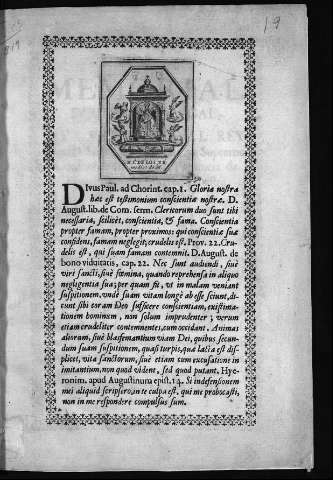 19
DIvus Paul. ad Chorint. cap. 1. Gloria nostra
hæc est testimonium conscientiæ nostræ. D.
August. lib. de Com. serm. Clericorum duo sunt tibi
necessaria, scilicèt, conscientia, & fama. Conscientia
propter famam, propter proximos: qui conscientiæ suæ
confidens, famam neglegit, crudelis est. Prov. 22. Cru-
delis est, qui suam famam contemnit. D. August. de
bono viduitatis, cap. 22. Nec sunt audiendi, sivè
viri sancti, sivè fœmina, quando reprehensa in aliquo
negligentia sua; per quam fit, ut in malam veniant
suspitionem, undè suam vitam longè ab esse sciunt, di-
cunt sibi coram Deo sufficere conscientiam, existima-
tionem hominum, non solum imprudenter, verum
etiam crudeliter contemnentes, cum occidant. Animas
aliorum, sivè blasfemantium viam Dei, quibus secun-
dum suam suspitionem, quasi turpis, quæ lacta est dis-
plicet, vita sanctorum, sivè etiam cum excusatione in
imitantium, non quod vident, sed quod putant. Hye-
ronim. apud Augustinum epist. 14. Si indefensionem
mei aliquid scripsero, in te culpa est, qui me probocasti,
non in me respondere compulsus sum.